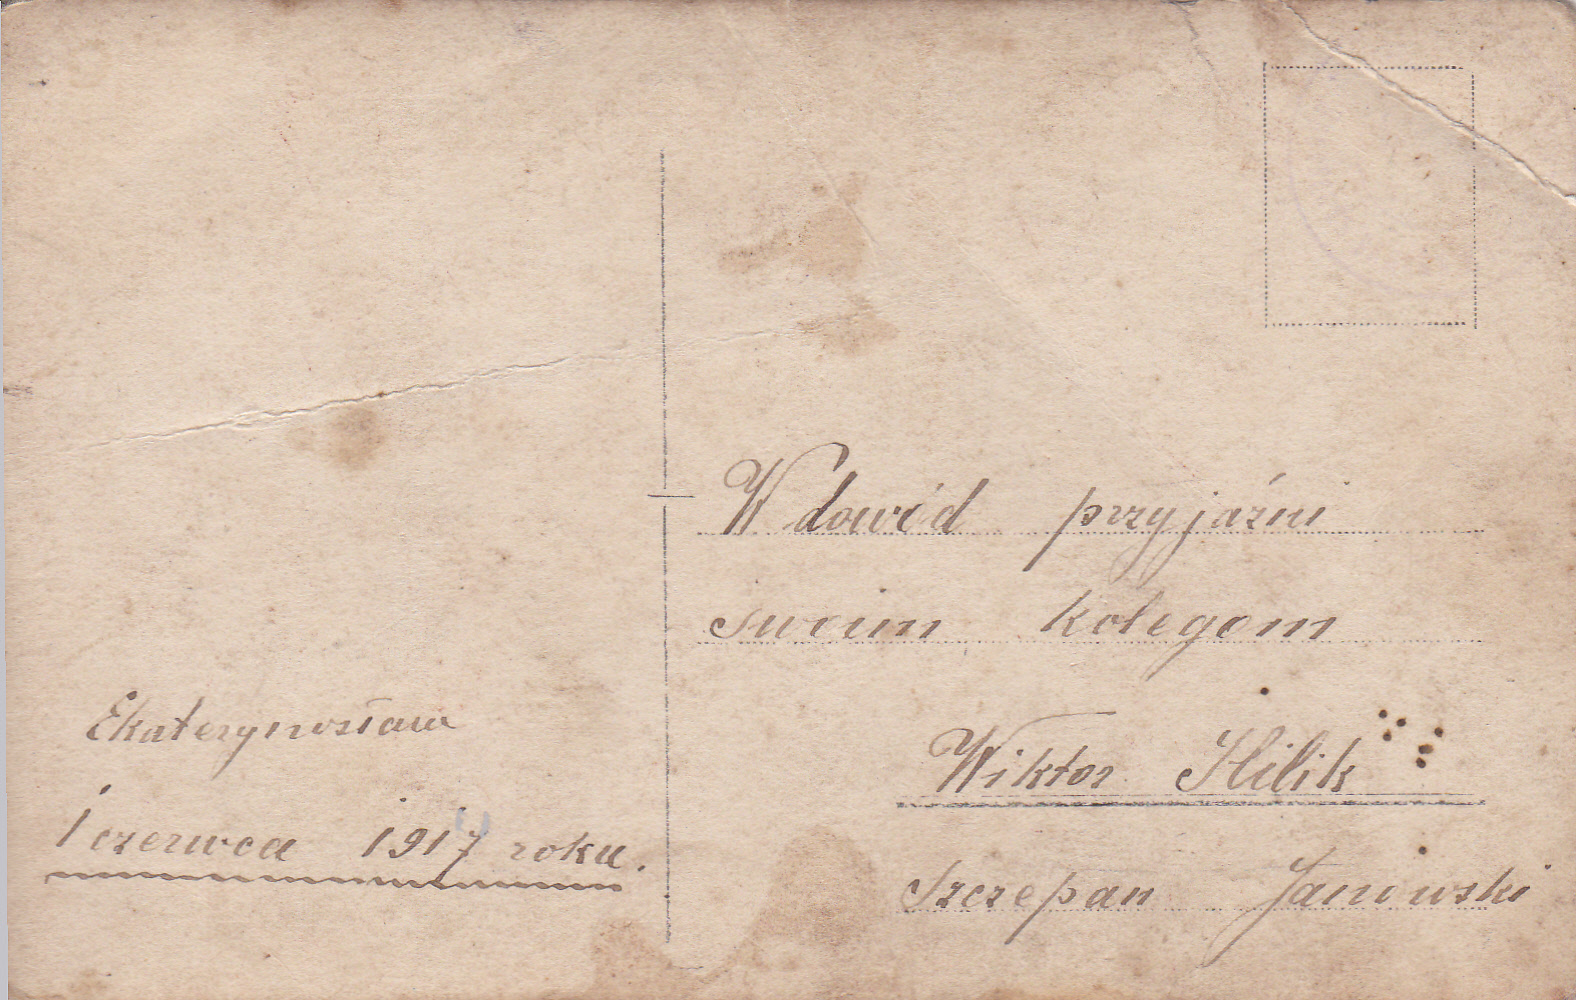 W dowód przyjaźni
swoim kolegom
Wiktor Hilik
Szczepan Janowski
Ekaterynosława
1 czerwca 1917 roku.